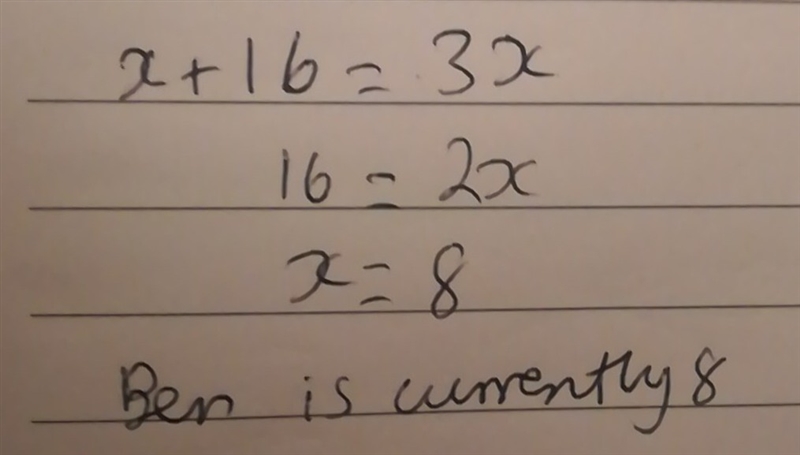 x + 16 = 3x
16 = 2x
x = 8
Ben is currently 8